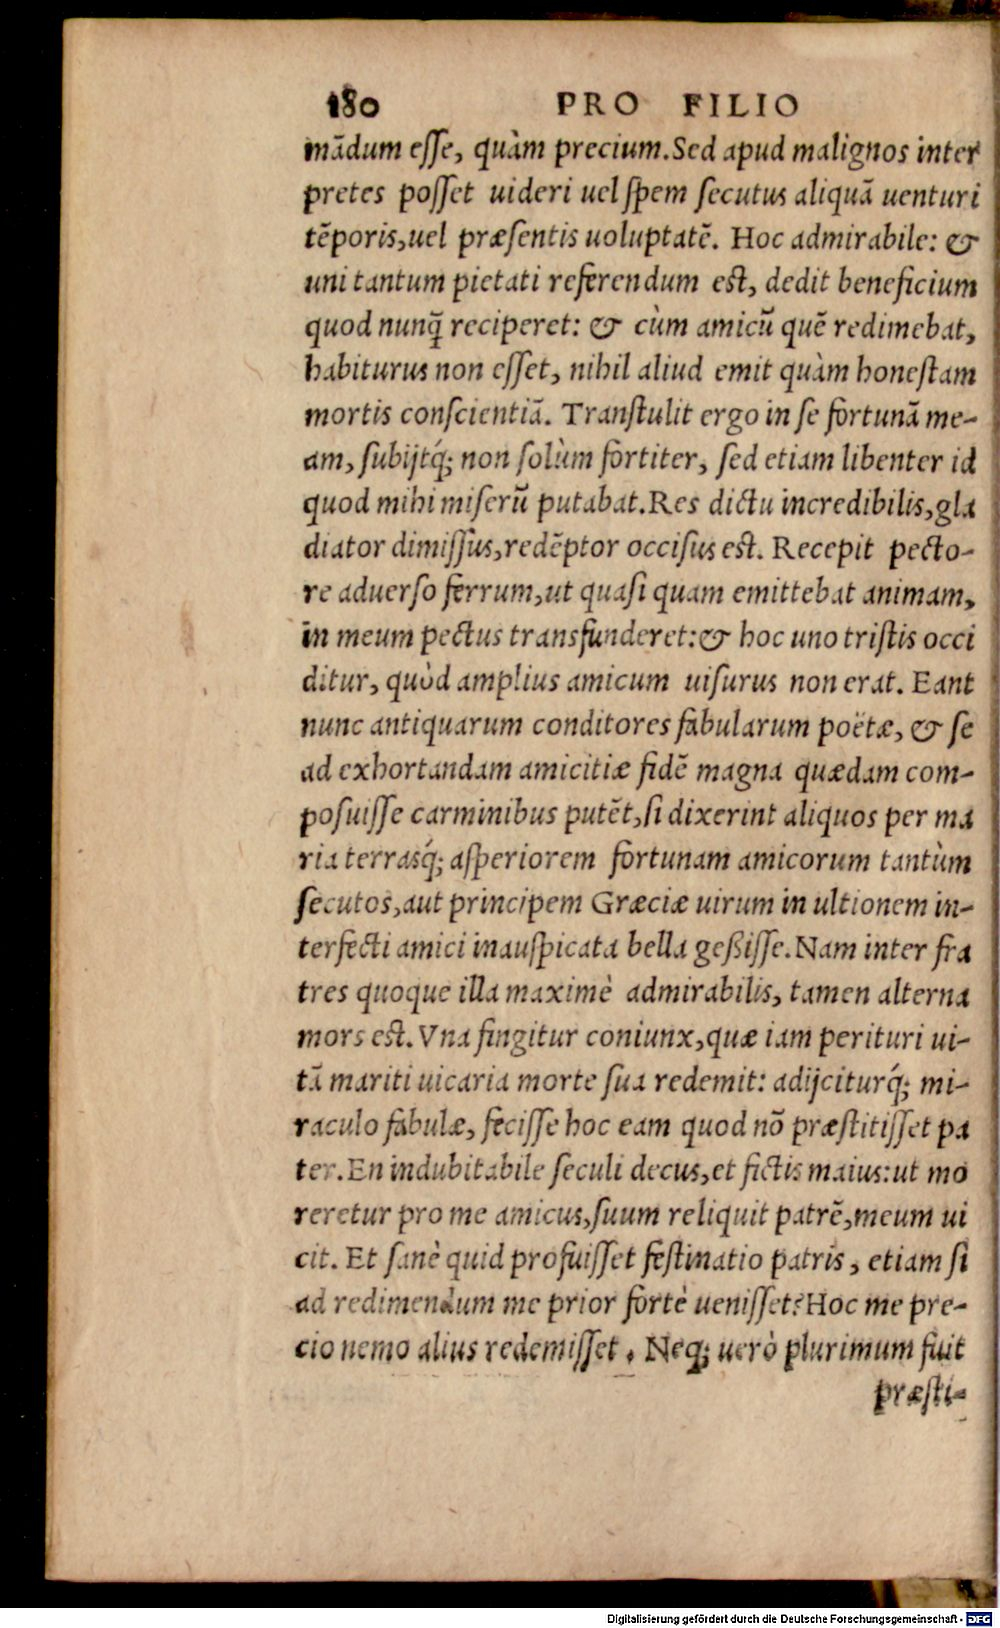 180 PRO FILIO
mādum esse, quàm precium. Sed apud malignos inter
pretes posset uideri uel spem secutus aliquā uenturi
tēporis, uel præsentis uoluptatē. Hoc admirabile: &
uni tantum pietati referendum est, dedit beneficium
quod nunq̃ reciperet: & cùm amicū quē redimebat,
habiturus non esset, nihil aliud emit quàm honestam
mortis conscientiā. Transtulit ergo in se fortunā me-
am, subijtq́; non solùm fortiter, sed etiam libenter id
quod mihi miserū putabat. Res dictu incredibilis, gla
diator dimissus, redēptor occisus est. Recepit pecto-
re aduerso ferrum, ut quasi quam emittebat animam,
in meum pectus transfunderet: & hoc uno tristis occi
ditur, quòd amplius amicum uisurus non erat. Eant
nunc antiquarum conditores fabularum poëtæ, & se
ad exhortandam amicitiæ fidē magna quædam com-
posuisse carminibus putēt, si dixerint aliquos per ma
ria terrasq́; asperiorem fortunam amicorum tantùm
secutos, aut principem Græciæ uirum in ultionem in-
terfecti amici inauspicata bella geßisse. Nam inter fra
tres quoque illa maximè admirabilis, tamen alterna
mors est. Vna fingitur coniunx, quæ iam perituri ui-
tā mariti uicaria morte sua redemit: adijciturq́; mi-
raculo fabulæ, fecisse hoc eam quod nō præstitisset pa
ter. En indubitabile seculi decus, et fictis maius: ut mo
reretur pro me amicus, suum reliquit patrē, meum ui
cit. Et sanè quid profuisset festinatio patris, etiam si
ad redimendum me prior fortè uenisset? Hoc me pre-
cio nemo alius redemisset. Neq; uerò plurimum fuit
præsti-
Digitalisierung gefördert durch die Deutsche Forschungsgemeinschaft - DFG